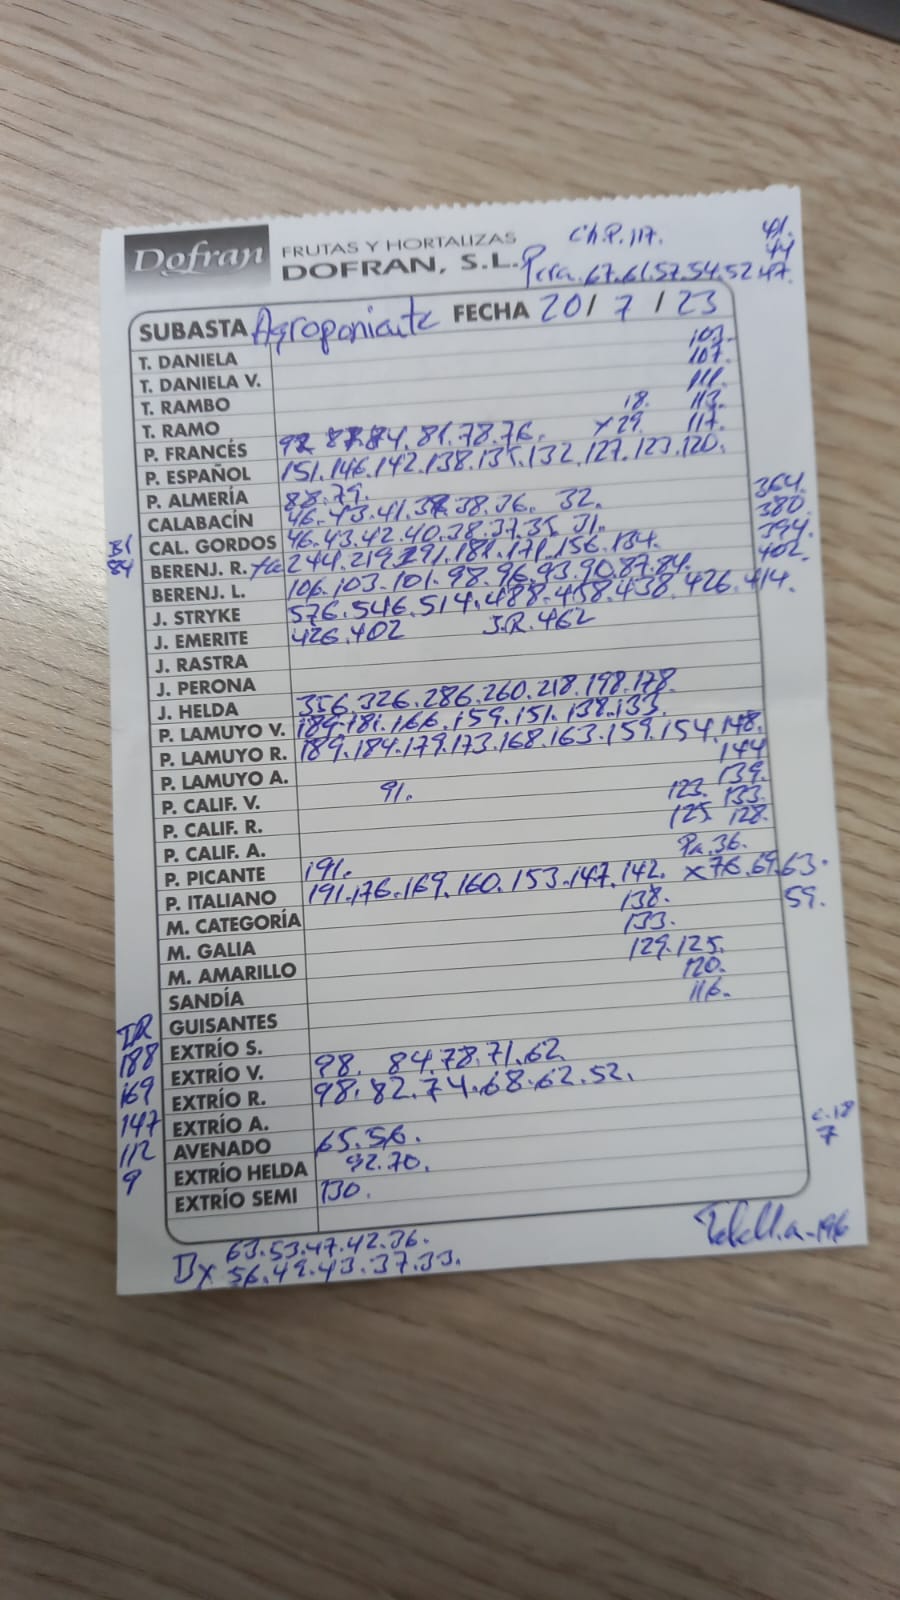 Dofran FRUTAS Y HORTALIZAS
DOFRAN, S.L.
Ch.P. 117. 41.
44
Pera. 67. 61. 57. 54. 52 47.
SUBASTA Agroponiente FECHA 20 / 7 / 23
T. DANIELA 103.
T. DANIELA V. 107.
T. RAMBO 111.
T. RAMO 18. 113.
P. FRANCÉS 84. 81. 78. 76. x 29. 117.
P. ESPAÑOL 151. 146. 142. 138. 135. 132. 127. 123. 120.
P. ALMERÍA 88. 79.
CALABACÍN 46. 43. 41. 38. 36. 32. 364.
CAL. GORDOS 46. 43. 42. 40. 38. 37. 35. 31. 380
81
BERENJ. R. 244. 219. 181. 171. 156. 134. 394.
84
BERENJ. L. 106. 103. 101. 98. 96. 93. 90. 87. 84. 402.
J. STRYKE 576. 546. 514. 488. 458. 438. 426. 414.
J. EMERITE 426. 402 J.R. 462
J. RASTRA
J. PERONA
J. HELDA 356. 326. 286. 260. 218. 198. 178.
P. LAMUYO V. 189. 181. 166. 159. 151. 138. 133.
P. LAMUYO R. 189. 184. 179. 173. 168. 163. 159. 154. 148.
P. LAMUYO A. 144
P. CALIF. V. 91. 139.
P. CALIF. R. 123. 133.
P. CALIF. A. 125. 128.
P. PICANTE 191. Pa. 36.
P. ITALIANO 191. 176. 169. 160. 153. 147. 142. x 76. 69. 63.
M. CATEGORÍA 138. 59.
M. GALIA 133.
M. AMARILLO 129. 125.
SANDÍA 120.
GUISANTES 116.
IR
EXTRÍO S.
188
EXTRÍO V. 98. 84. 78. 71. 62
169
EXTRÍO R. 98. 82. 74. 68. 62. 52.
147
EXTRÍO A.
112
AVENADO 65. 56.
c. 18
7
9
EXTRÍO HELDA 92. 70.
EXTRÍO SEMI 130.
63. 53. 47. 42. 36.
Dx 56. 49. 43. 37. 33.